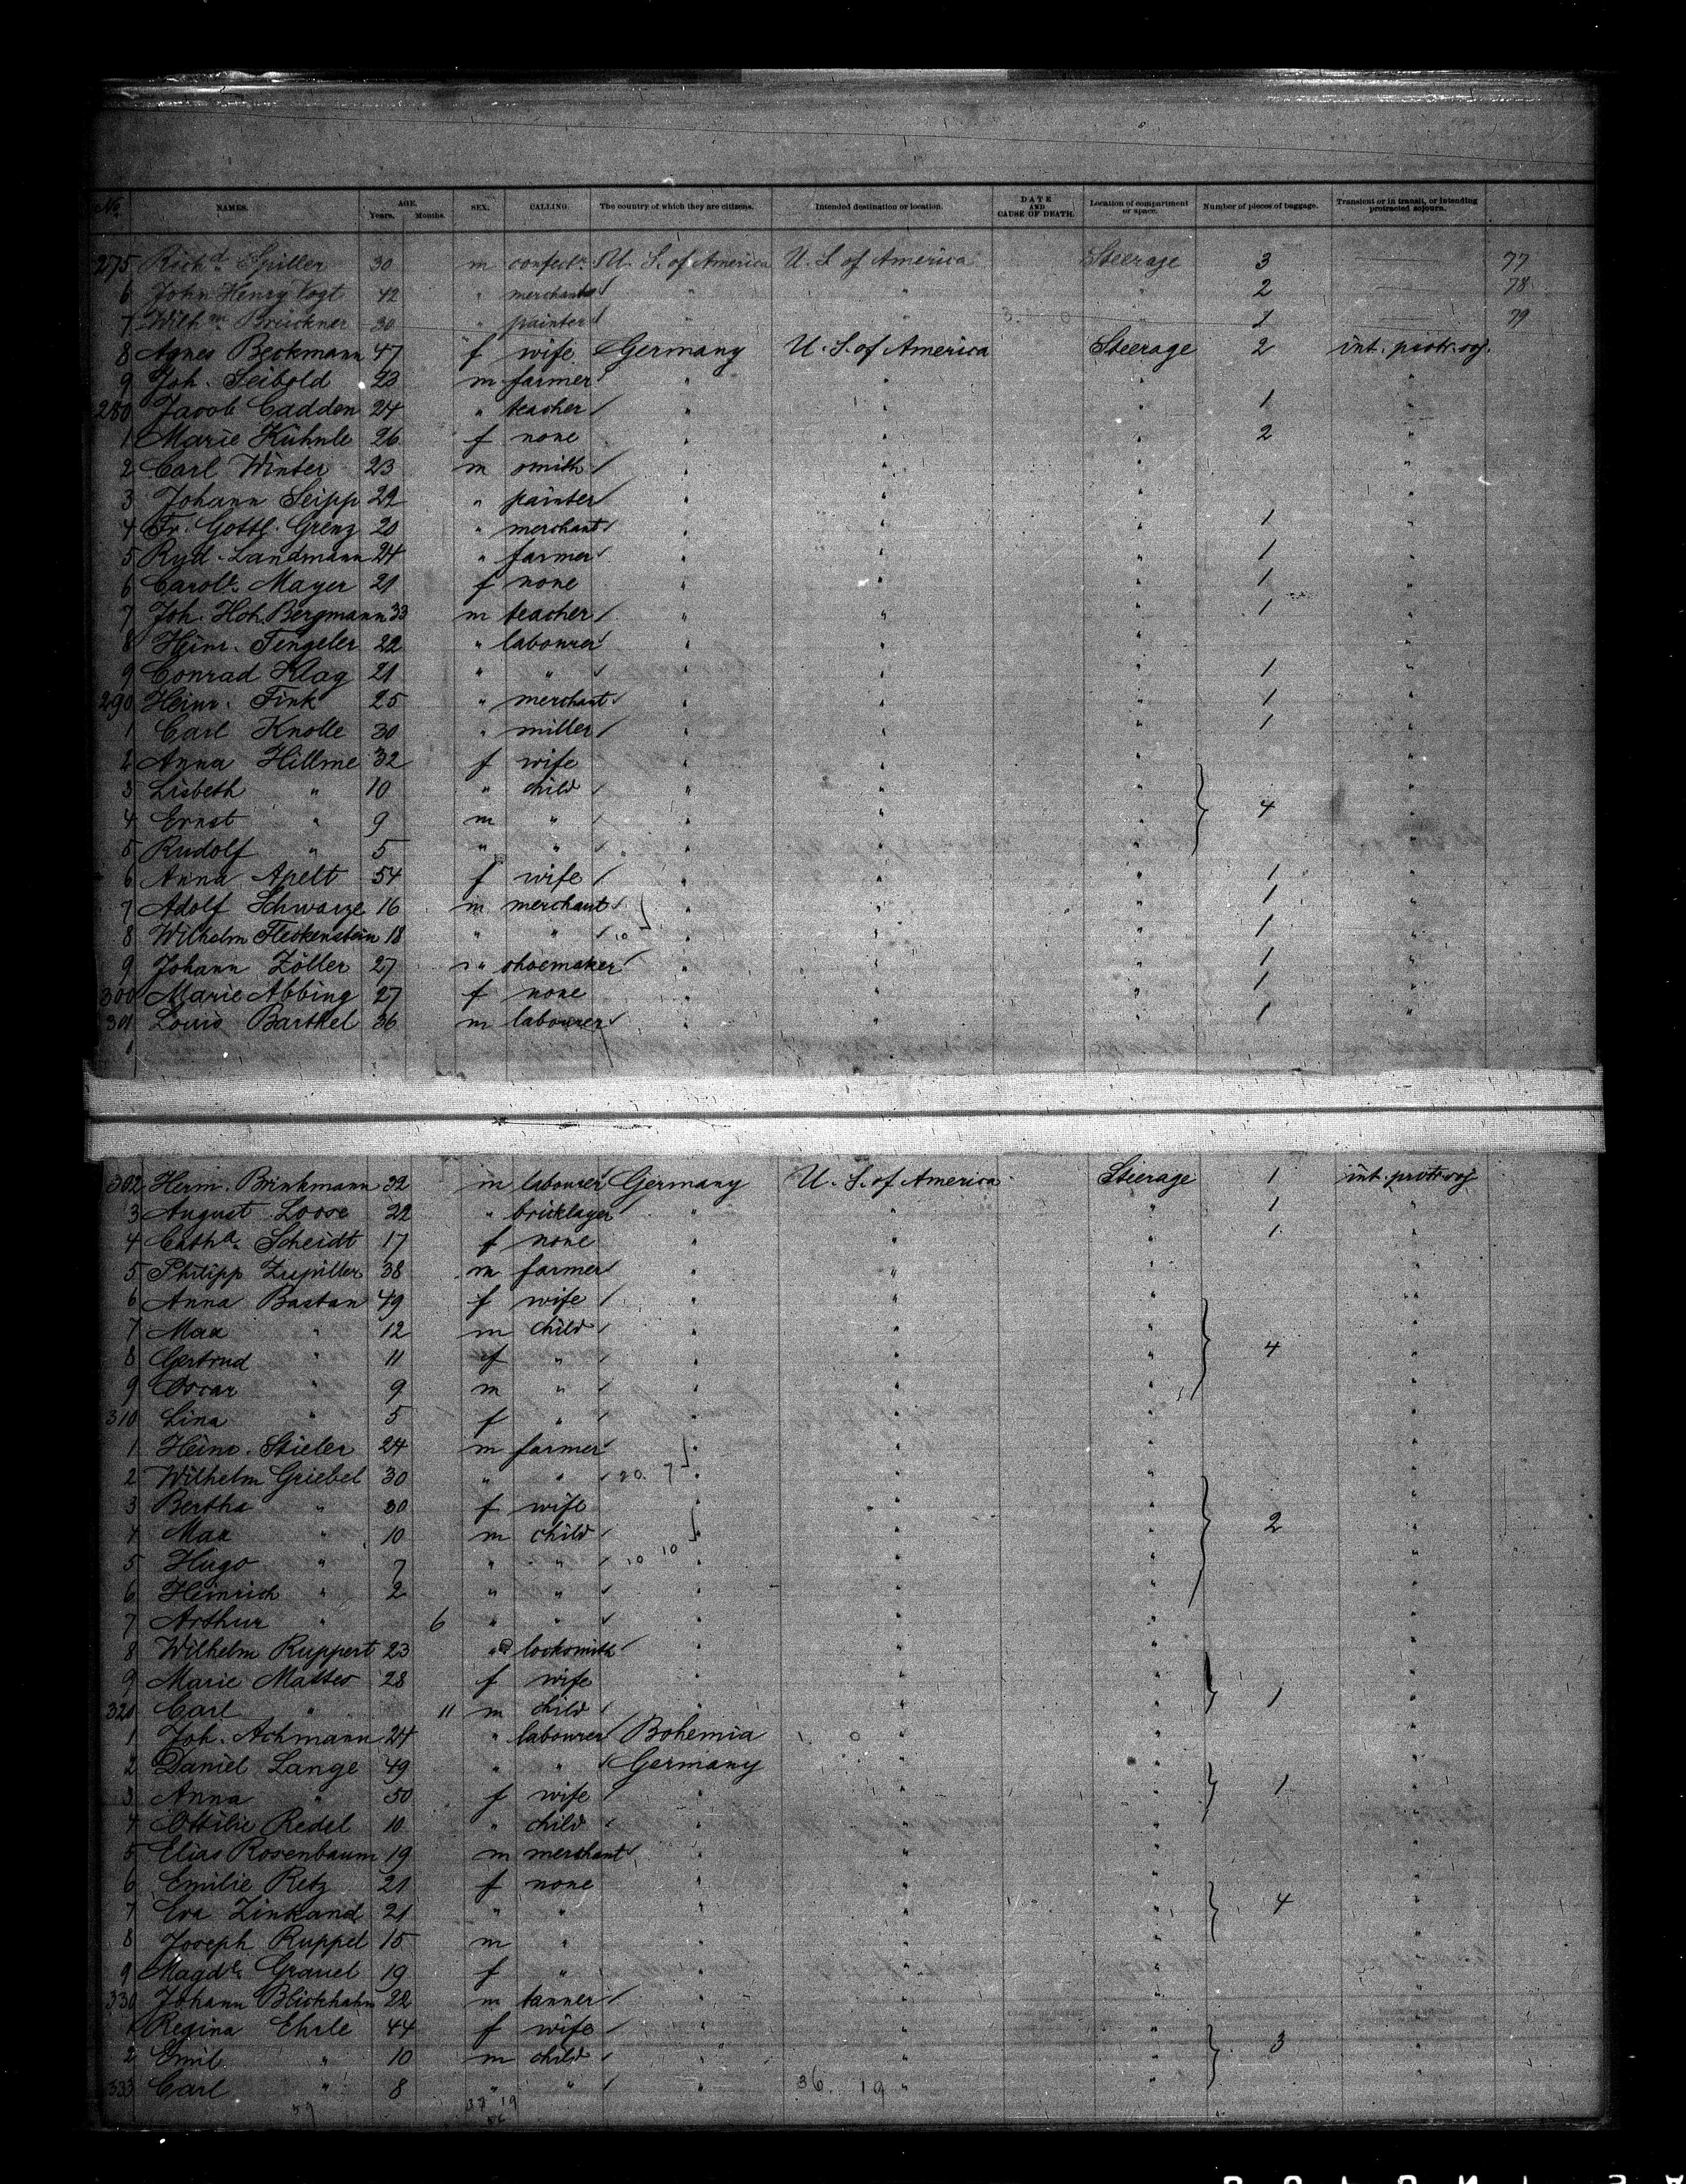 No. NAMES. AGE. Years. Months. SEX. CALLING. The country of which they are citizens. Intended destination or location. DATE AND CAUSE OF DEATH. Location of compartment or space. Number of pieces of baggage. Transient or in transit, or intending protracted sojourn.
275 Rich.d Spiller 30 m confect.r U. S. of America U. S. of America Steerage 3 77
6 John Henry Vogt 42 " merchant " " " 2 78
7 Wilh.m Brückner 30 " painter " " " 1 79
8 Agnes Beckmann 47 f wife Germany U. S. of America Steerage 2 int. protr. soj.
9 Joh. Seibold 23 m farmer " " " "
280 Jacob Cadden 24 " teacher " " " 1 "
1 Marie Kühnle 26 f none " " " 2 "
2 Carl Winter 23 m smith " " " "
3 Johann Seipp 29 " painter " " " "
4 Fr. Gottl. Grenz 20 " merchant " " " 1 "
5 Ryd. Landmann 24 " farmer " " " 1 "
6 Carol.e Mayer 21 f none " " " 1 "
7 Joh. Hch. Bergmann 33 m teacher " " " 1 "
8 Heinr. Tengeler 22 " labourer " " " "
9 Conrad Klag 21 " " " " " 1 "
290 Heinr. Fink 25 " merchant " " " 1 "
1 Carl Knolle 30 " miller " " " 1 "
2 Anna Hillme 32 f wife " " " "
3 Lisbeth " 10 " child " " " "
4 Ernst " 9 m " " " " 4 "
5 Rudolf " 5 " " " " " "
6 Anna Apelt 54 f wife " " " 1 "
7 Adolf Schwarze 16 m merchant " " " 1 "
8 Wilhelm Fleckenstein 18 " " 10 " " " 1 "
9 Johann Zöller 27 " shoemaker " " " 1 "
300 Marie Abbing 27 f none " " " 1 "
301 Louis Barthel 36 m labourer " " " 1 "
302 Herm. Brinkmann 32 m labourer Germany U. S. of America Steerage 1 int. protr. soj
3 August Loose 22 " bricklayer " " " 1 "
4 Cath.a Scheidt 17 f none " " " 1 "
5 Philipp 38 m farmer " " " "
6 Anna Bastan 49 f wife " " " "
7 Max " 12 m child " " " "
8 Gertrud " 11 f " " " " 4 "
9 Oscar " 9 m " " " " "
310 Lina " 5 f " " " " "
1 Heinr. Stieler 24 m farmer " " " "
2 Wilhelm Griebel 30 " " 20 7 " " " "
3 Bertha " 30 f wife " " " "
4 Max " 10 m child " " " 2 "
5 Hugo " 7 " " 10 10 " " " "
6 Heinrich " 2 " " " " " "
7 Arthur " 6 " " " " " "
8 Wilhelm Ruppert 23 " locksmith " " " "
9 Marie Mattes 28 f wife " " " "
320 Carl " 11 m child " " " 1 "
1 Joh. Achmann 24 " labourer Bohemia " " "
2 Daniel Lange 49 " " Germany " " "
3 Anna " 50 f wife " " " 1 "
4 Ottilie Redel 10 " child " " " "
5 Elias Rosenbaum 19 m merchant " " " "
6 Emilie Retz 21 f none " " " "
7 Eva Zinkand 21 " " " " " 4 "
8 Joseph Ruppel 15 m " " " " "
9 Magd.e Grauel 19 f " " " " "
330 Johann Blickhahn 22 m tanner " " " "
1 Regina Ehrle 44 f wife " " " "
2 Emil " 10 m child " " " 3 "
333 Carl " 8 " " " 36 19 " " "
59 37 19